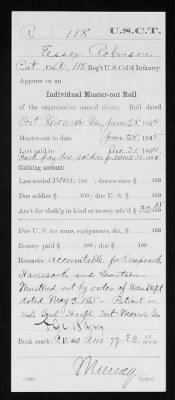 R 118 U.S.C.T.
Robinson
Co. 118 Reg't U.S. Col'd Infantry
Appears on an
Individual Muster-out Roll
of the organization named above. Roll dated
Fort Monroe Va, June 28, 1865.
Muster-out to date June 28, 1865.
Last paid to Dec 31, 1864.
Clothing account:
Last settled never, 186 ; drawn since $ 100
Due soldier $ 100; due U.S. $ 100
Am't for cloth'g in kind or money adv'd $ 100
Due U.S. for arms, equipments, &c., $ 100
Bounty paid $ 100; due $ 100
Remarks: Accountable for Knapsack
Haversack and Canteen
Mustered out by order of War Dept
dated May 3, 1865 - Patient in
U.S. Genl Hosp'l Fort Monroe Va
Book mark:
Murray
Copyist.